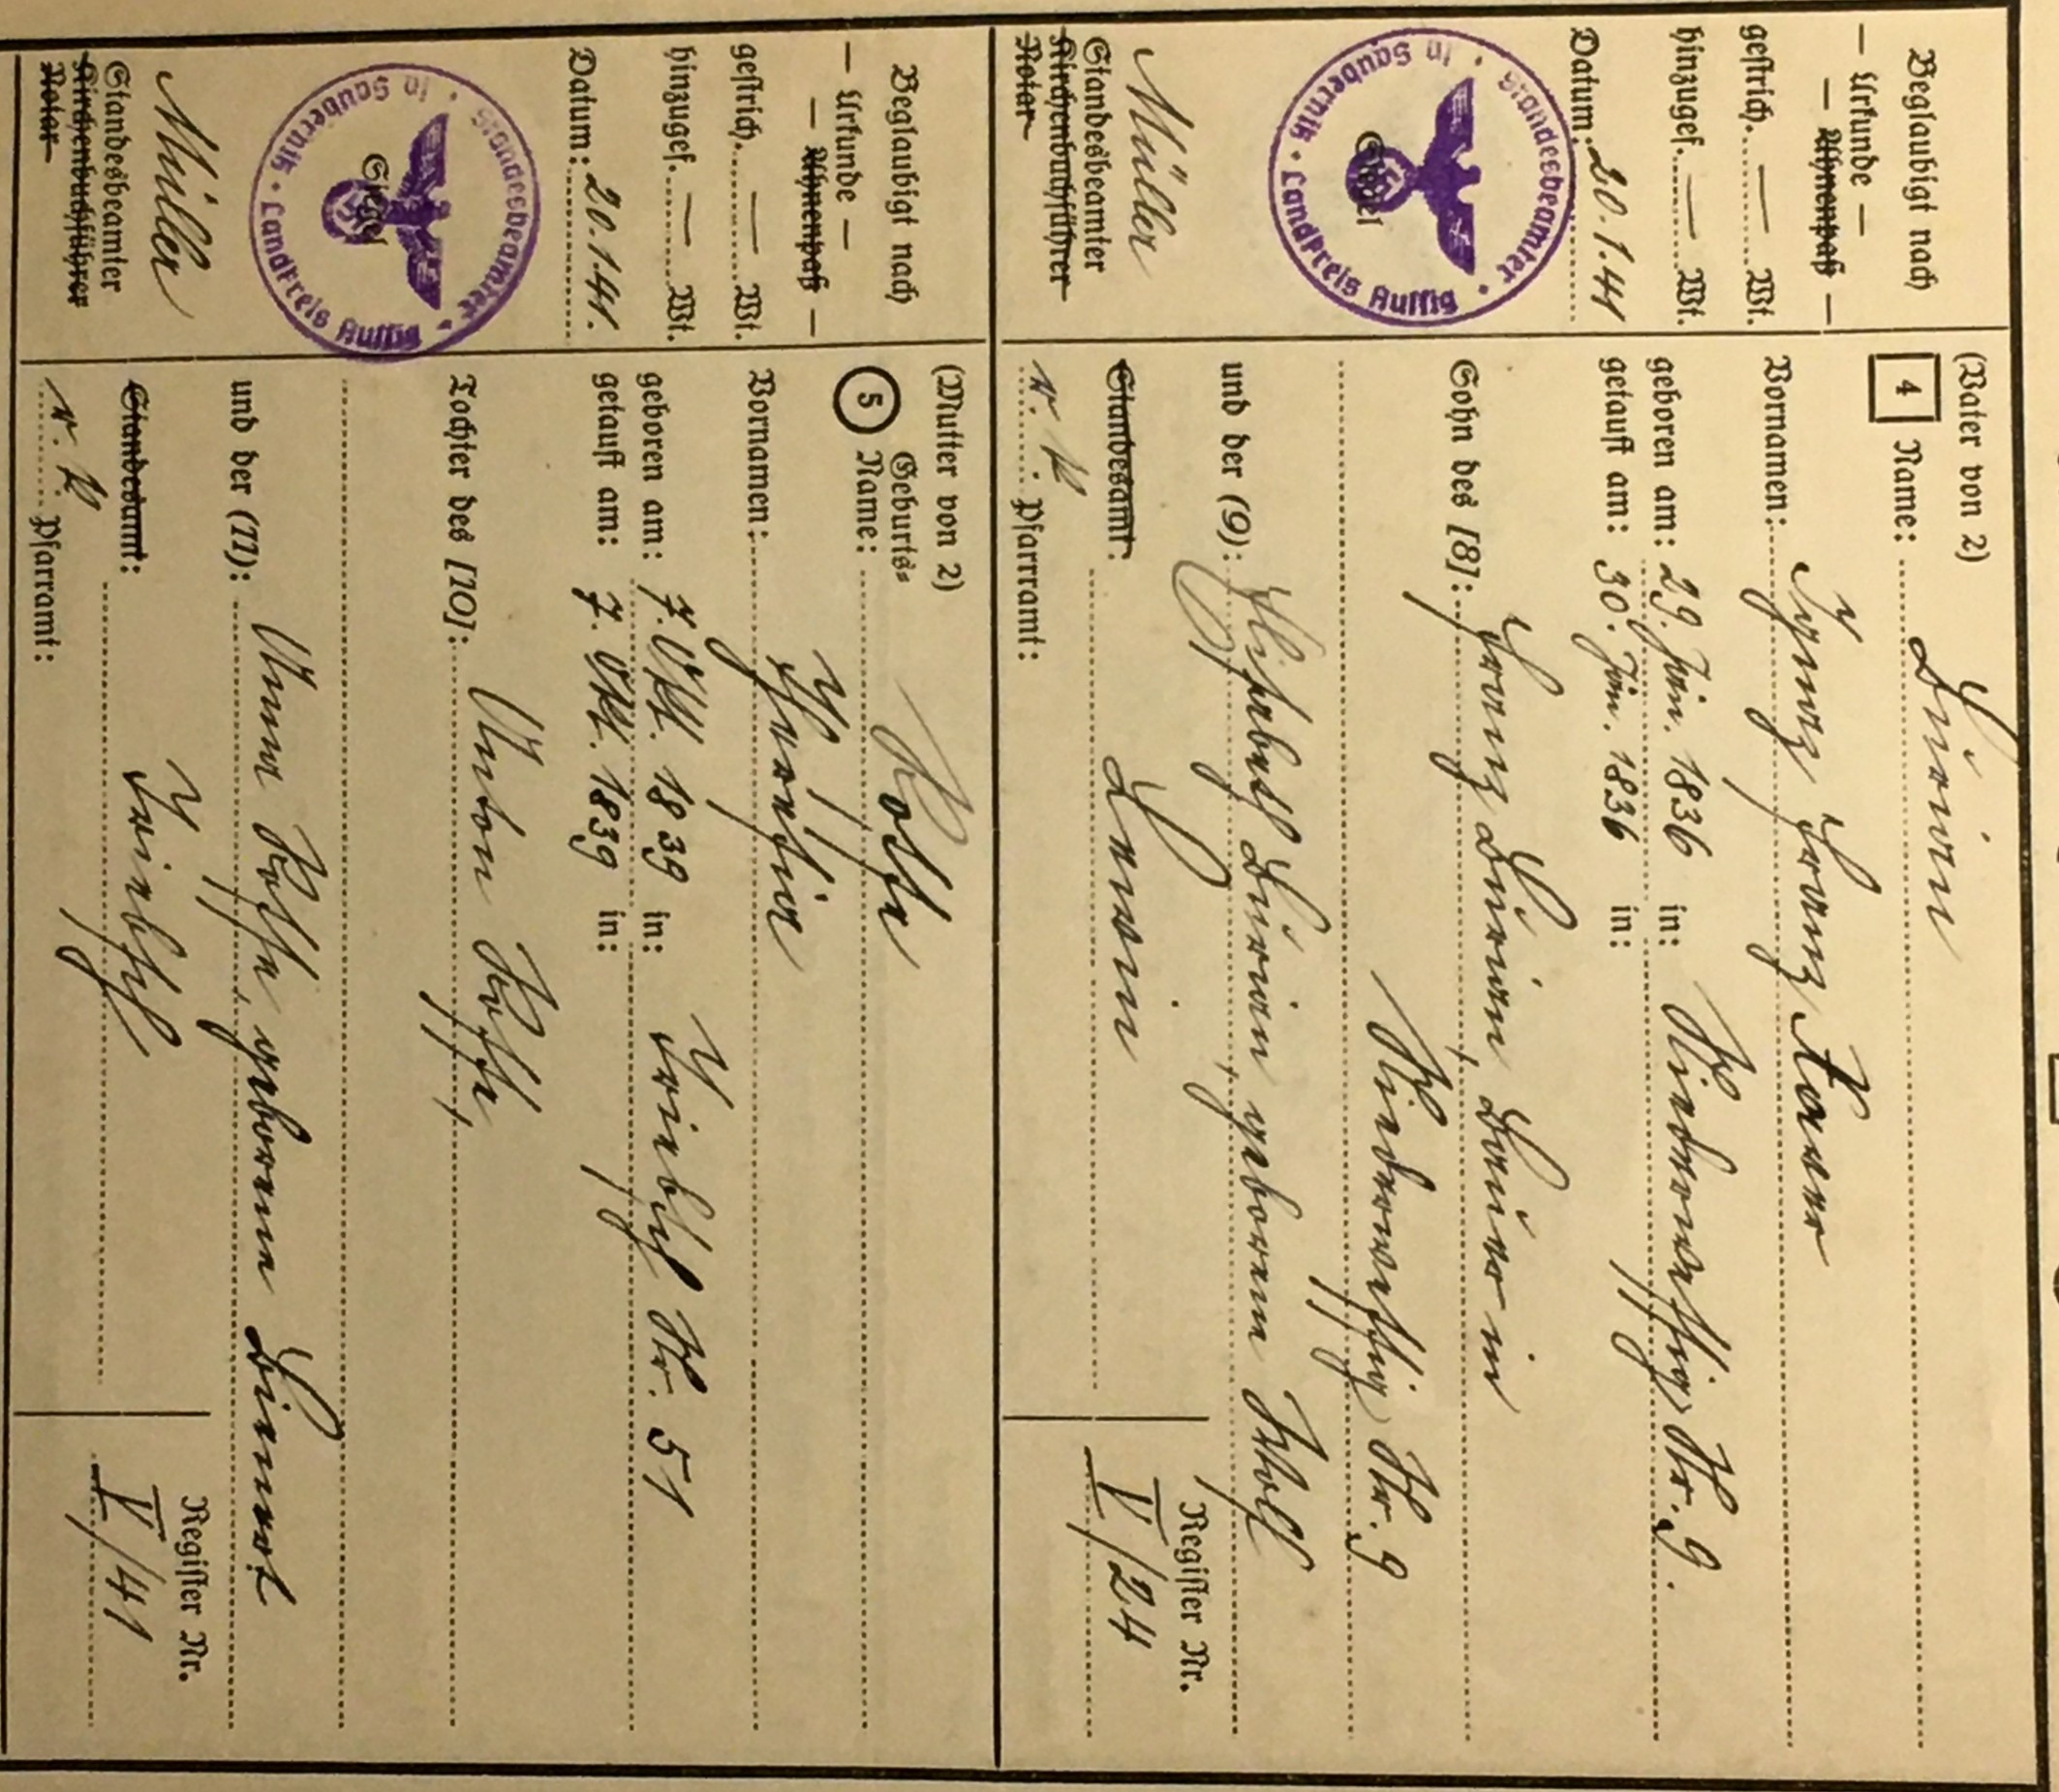 Beglaubigt nach
— Urkunde —
— Ahnenpaß —
gestrich. — Wt.
hinzugef. — Wt.
Datum: 20.1.41
Standesbeamter
in Saubernik • Landkreis Aussig
Siegel
Müller
Standesbeamter
Kirchenbuchführer
Notar
(Vater von 2)
4 Name: Burian
Vornamen: Ignaz Franz Xaver
geboren am: 29. Jän. 1836 in: Niederwessig Nr. 9.
getauft am: 30. Jän. 1836 in:
Sohn des [8]: Franz Burian, Bauer in
Niederwessig Nr. 9
und der (9): Elisabeth Burian, geborene Wolf
Standesamt: Lewin
r. k. Pfarrramt:
Register Nr.
V/24
Beglaubigt nach
— Urkunde —
— Ahnenpaß —
gestrich. — Wt.
hinzugef. — Wt.
Datum: 20.1.41.
Standesbeamter
in Saubernik • Landkreis Aussig
Siegel
Müller
Standesbeamter
Kirchenbuchführer
Notar
(Mutter von 2)
5 Geburts-
Name: Rosse
Vornamen: Theresia
geboren am: 7. Okt. 1839 in: Triebsch Nr. 51
getauft am: 7. Okt. 1839 in:
Tochter des [10]: Anton Rosse,
und der (11): Anna Rosse, geborene Bienert
Standesamt: Triebsch
r. k. Pfarramt:
Register Nr.
V/41